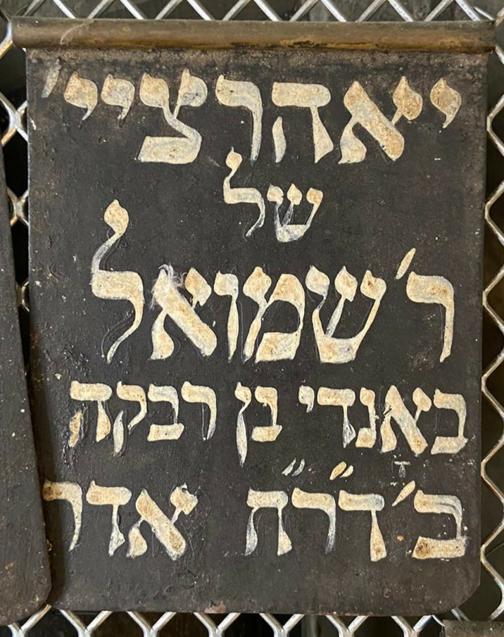 יאהרציי׳
של
ר׳ שמואל
באנדי בן רבקה
ב׳ ד״ר״ח אדר